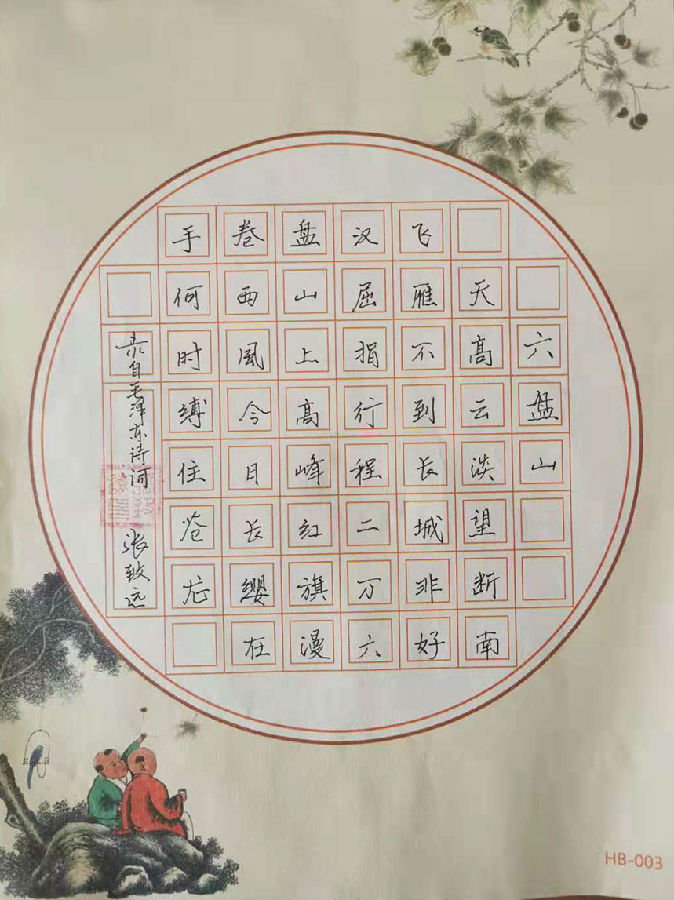 六盘山
天高云淡望断南
飞雁不到长城非好
汉屈指行程二万六
盘山上高峰红旗漫
卷西风今日长缨在
手何时缚住苍龙
录自毛泽东诗词 张致远
HB-003